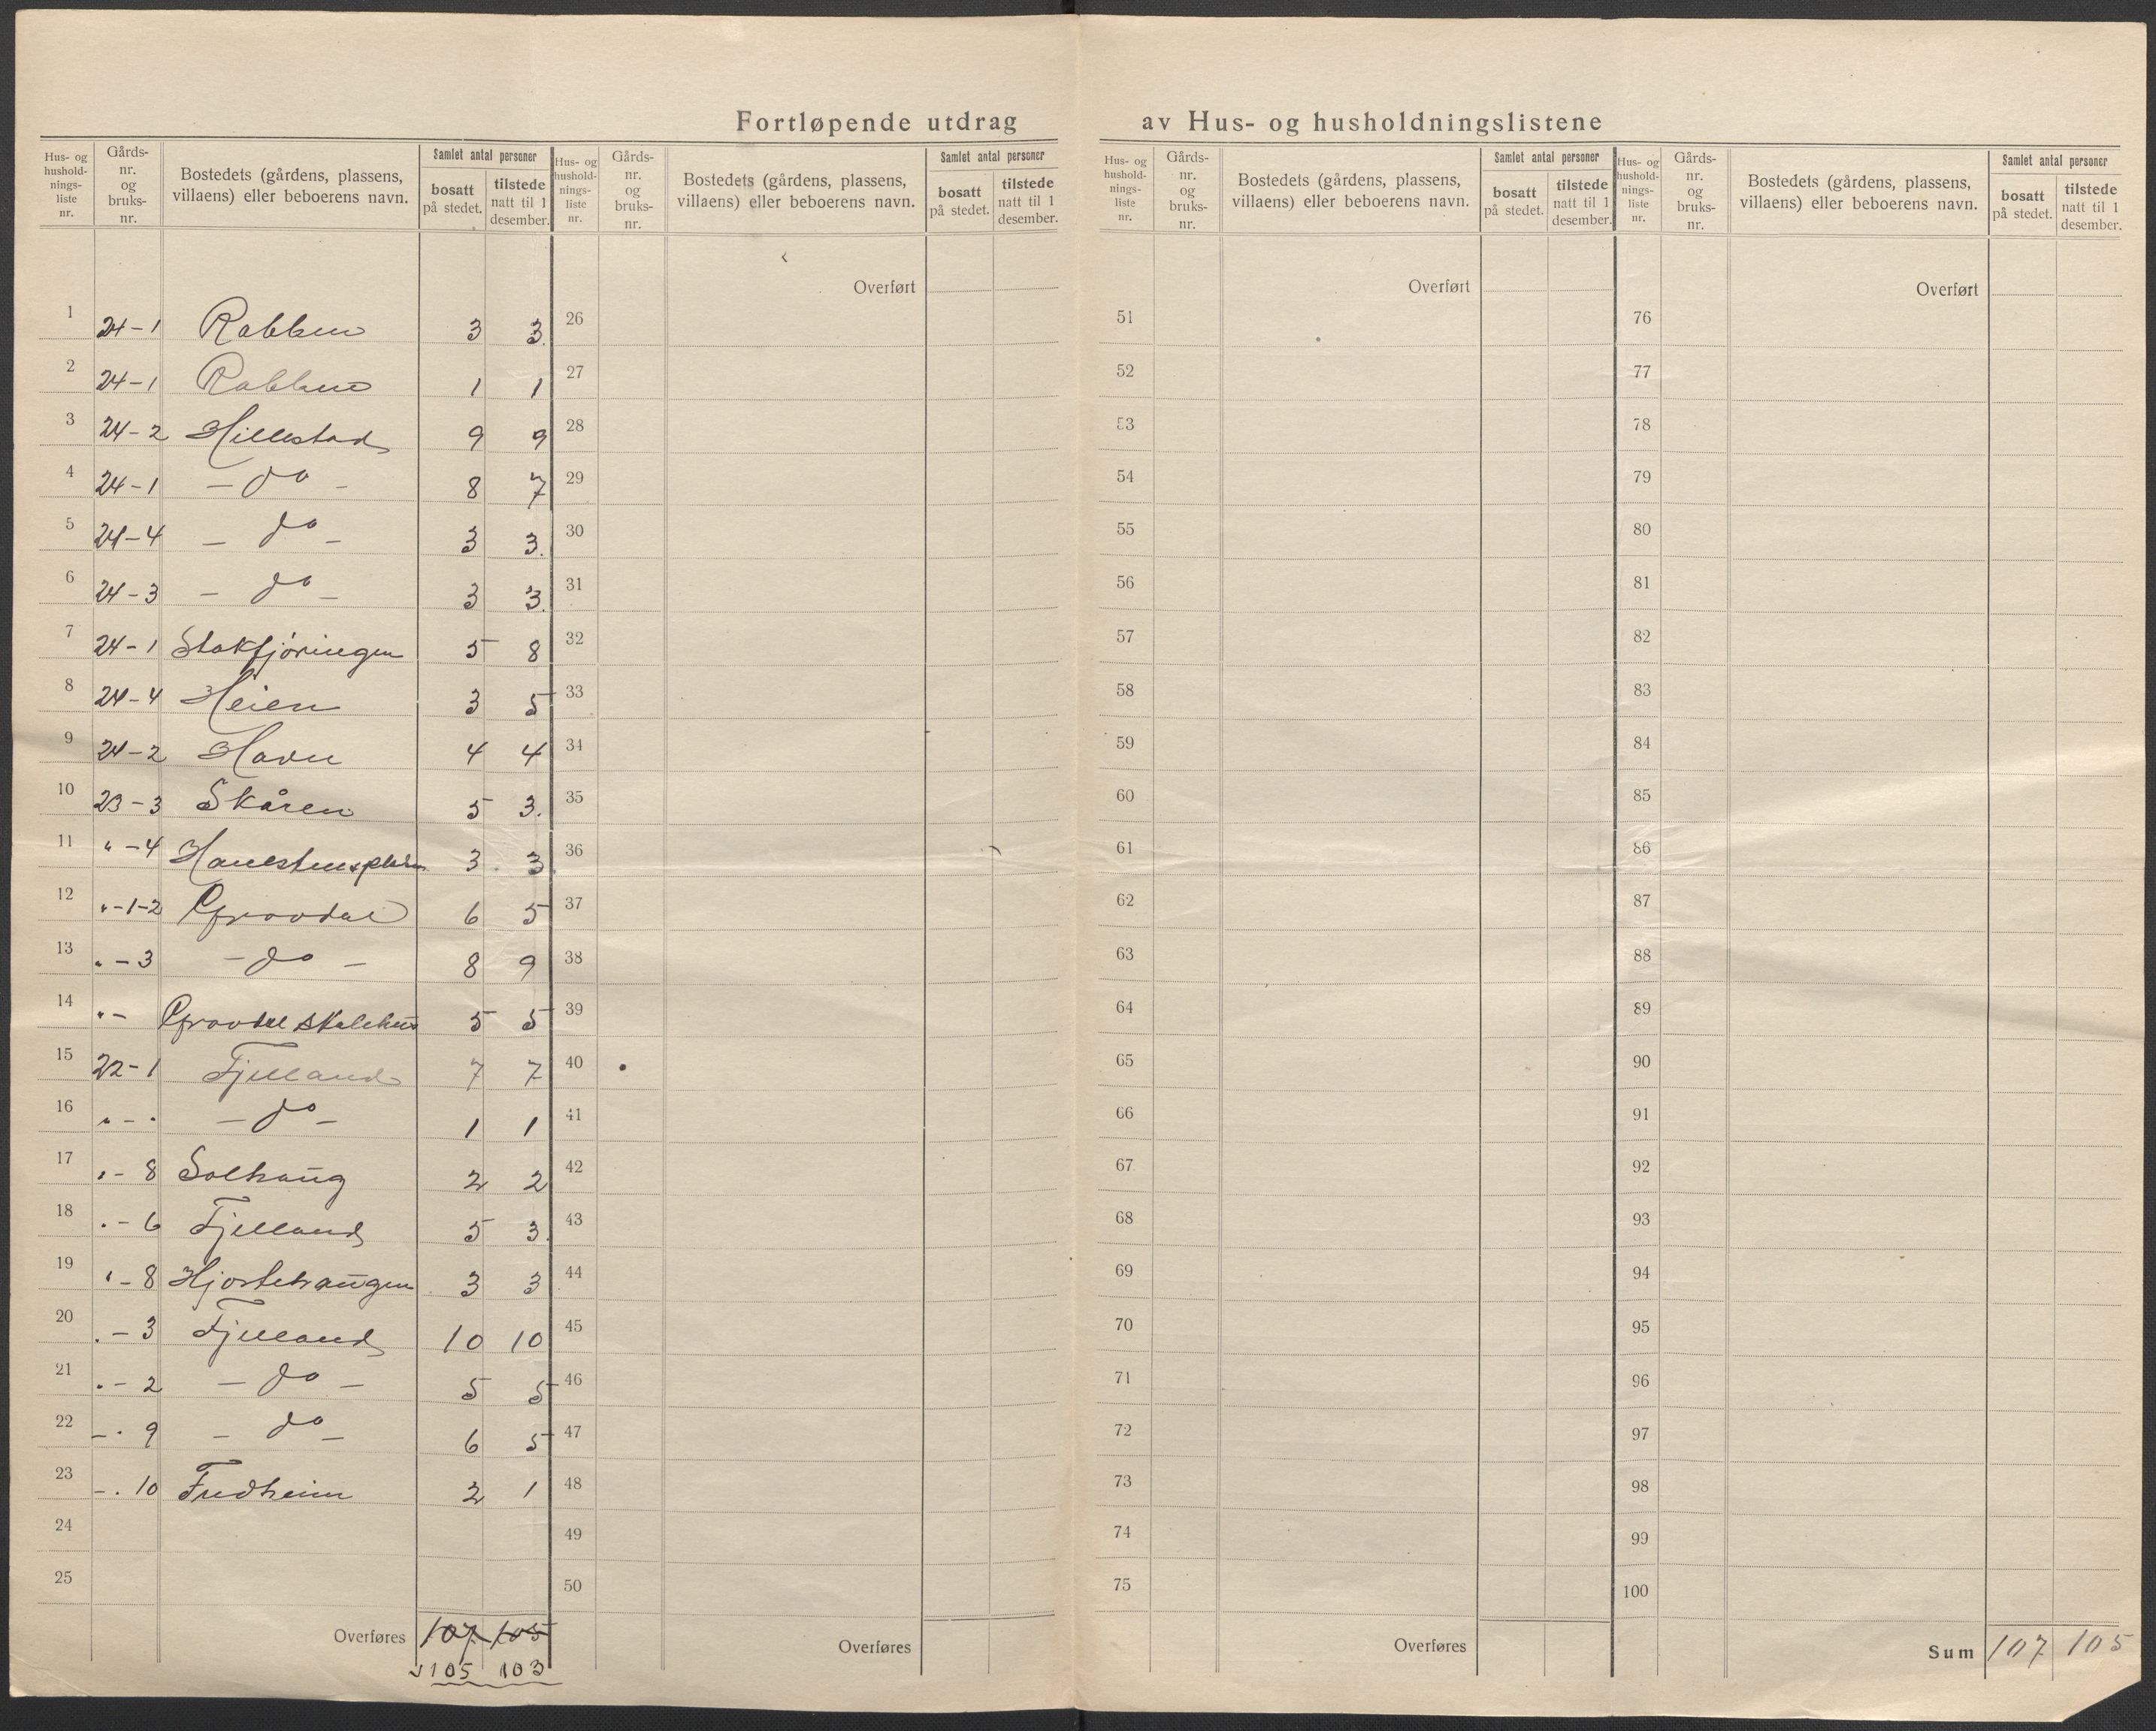 Fortløpende utdrag av Hus- og husholdningslistene
Hus- og hushold-nings-liste nr. Gårds-nr. og bruks-nr. Bostedets (gårdens, plassens, villaens) eller beboerens navn. Samlet antal personer bosatt på stedet. tilstede natt til 1 desember.
1 24-1 Rabben 3 3
2 24-1 Rabben 1 1
3 24-2 Hillestad 9 9
4 24-1 - do - 8 7
5 24-4 - do - 3 3
6 24-3 - do - 3 3
7 24-1 Stakfjøringen 5 8
8 24-4 Heien 3 5
9 24-2 Havn 4 4
10 23-3 Skåren 5 3
11 " -4 3 3
12 " -1-2 Grovdal 6 5
13 " -3 - do - 8 9
14 " - Grovdal skolehus 5 5
15 22-1 Fjelland 7 7
16 " - " - do - 1 1
17 " - 8 Solhaug 2 2
18 " - 6 Fjelland 5 3
19 " - 8 Hjortehaugen 3 3
20 " - 3 Fjelland 10 10
21 " - 2 - do - 5 5
22 - " 9 - do - 6 5
23 - " 10 Fredheim 2 1
24
25
Overføres 107 105
105 103
Hus- og hushold-nings-liste nr. Gårds-nr. og bruks-nr. Bostedets (gårdens, plassens, villaens) eller beboerens navn. Samlet antal personer bosatt på stedet. tilstede natt til 1 desember.
Overført
26
27
28
29
30
31
32
33
34
35
36
37
38
39
40
41
42
43
44
45
46
47
48
49
50
Overføres
Hus- og hushold-nings-liste nr. Gårds-nr. og bruks-nr. Bostedets (gårdens, plassens, villaens) eller beboerens navn. Samlet antal personer bosatt på stedet. tilstede natt til 1 desember.
Overført
51
52
53
54
55
56
57
58
59
60
61
62
63
64
65
66
67
68
69
70
71
72
73
74
75
Overføres
Hus- og hushold-nings-liste nr. Gårds-nr. og bruks-nr. Bostedets (gårdens, plassens, villaens) eller beboerens navn. Samlet antal personer bosatt på stedet. tilstede natt til 1 desember.
Overført
76
77
78
79
80
81
82
83
84
85
86
87
88
89
90
91
92
93
94
95
96
97
98
99
100
Sum 107 105